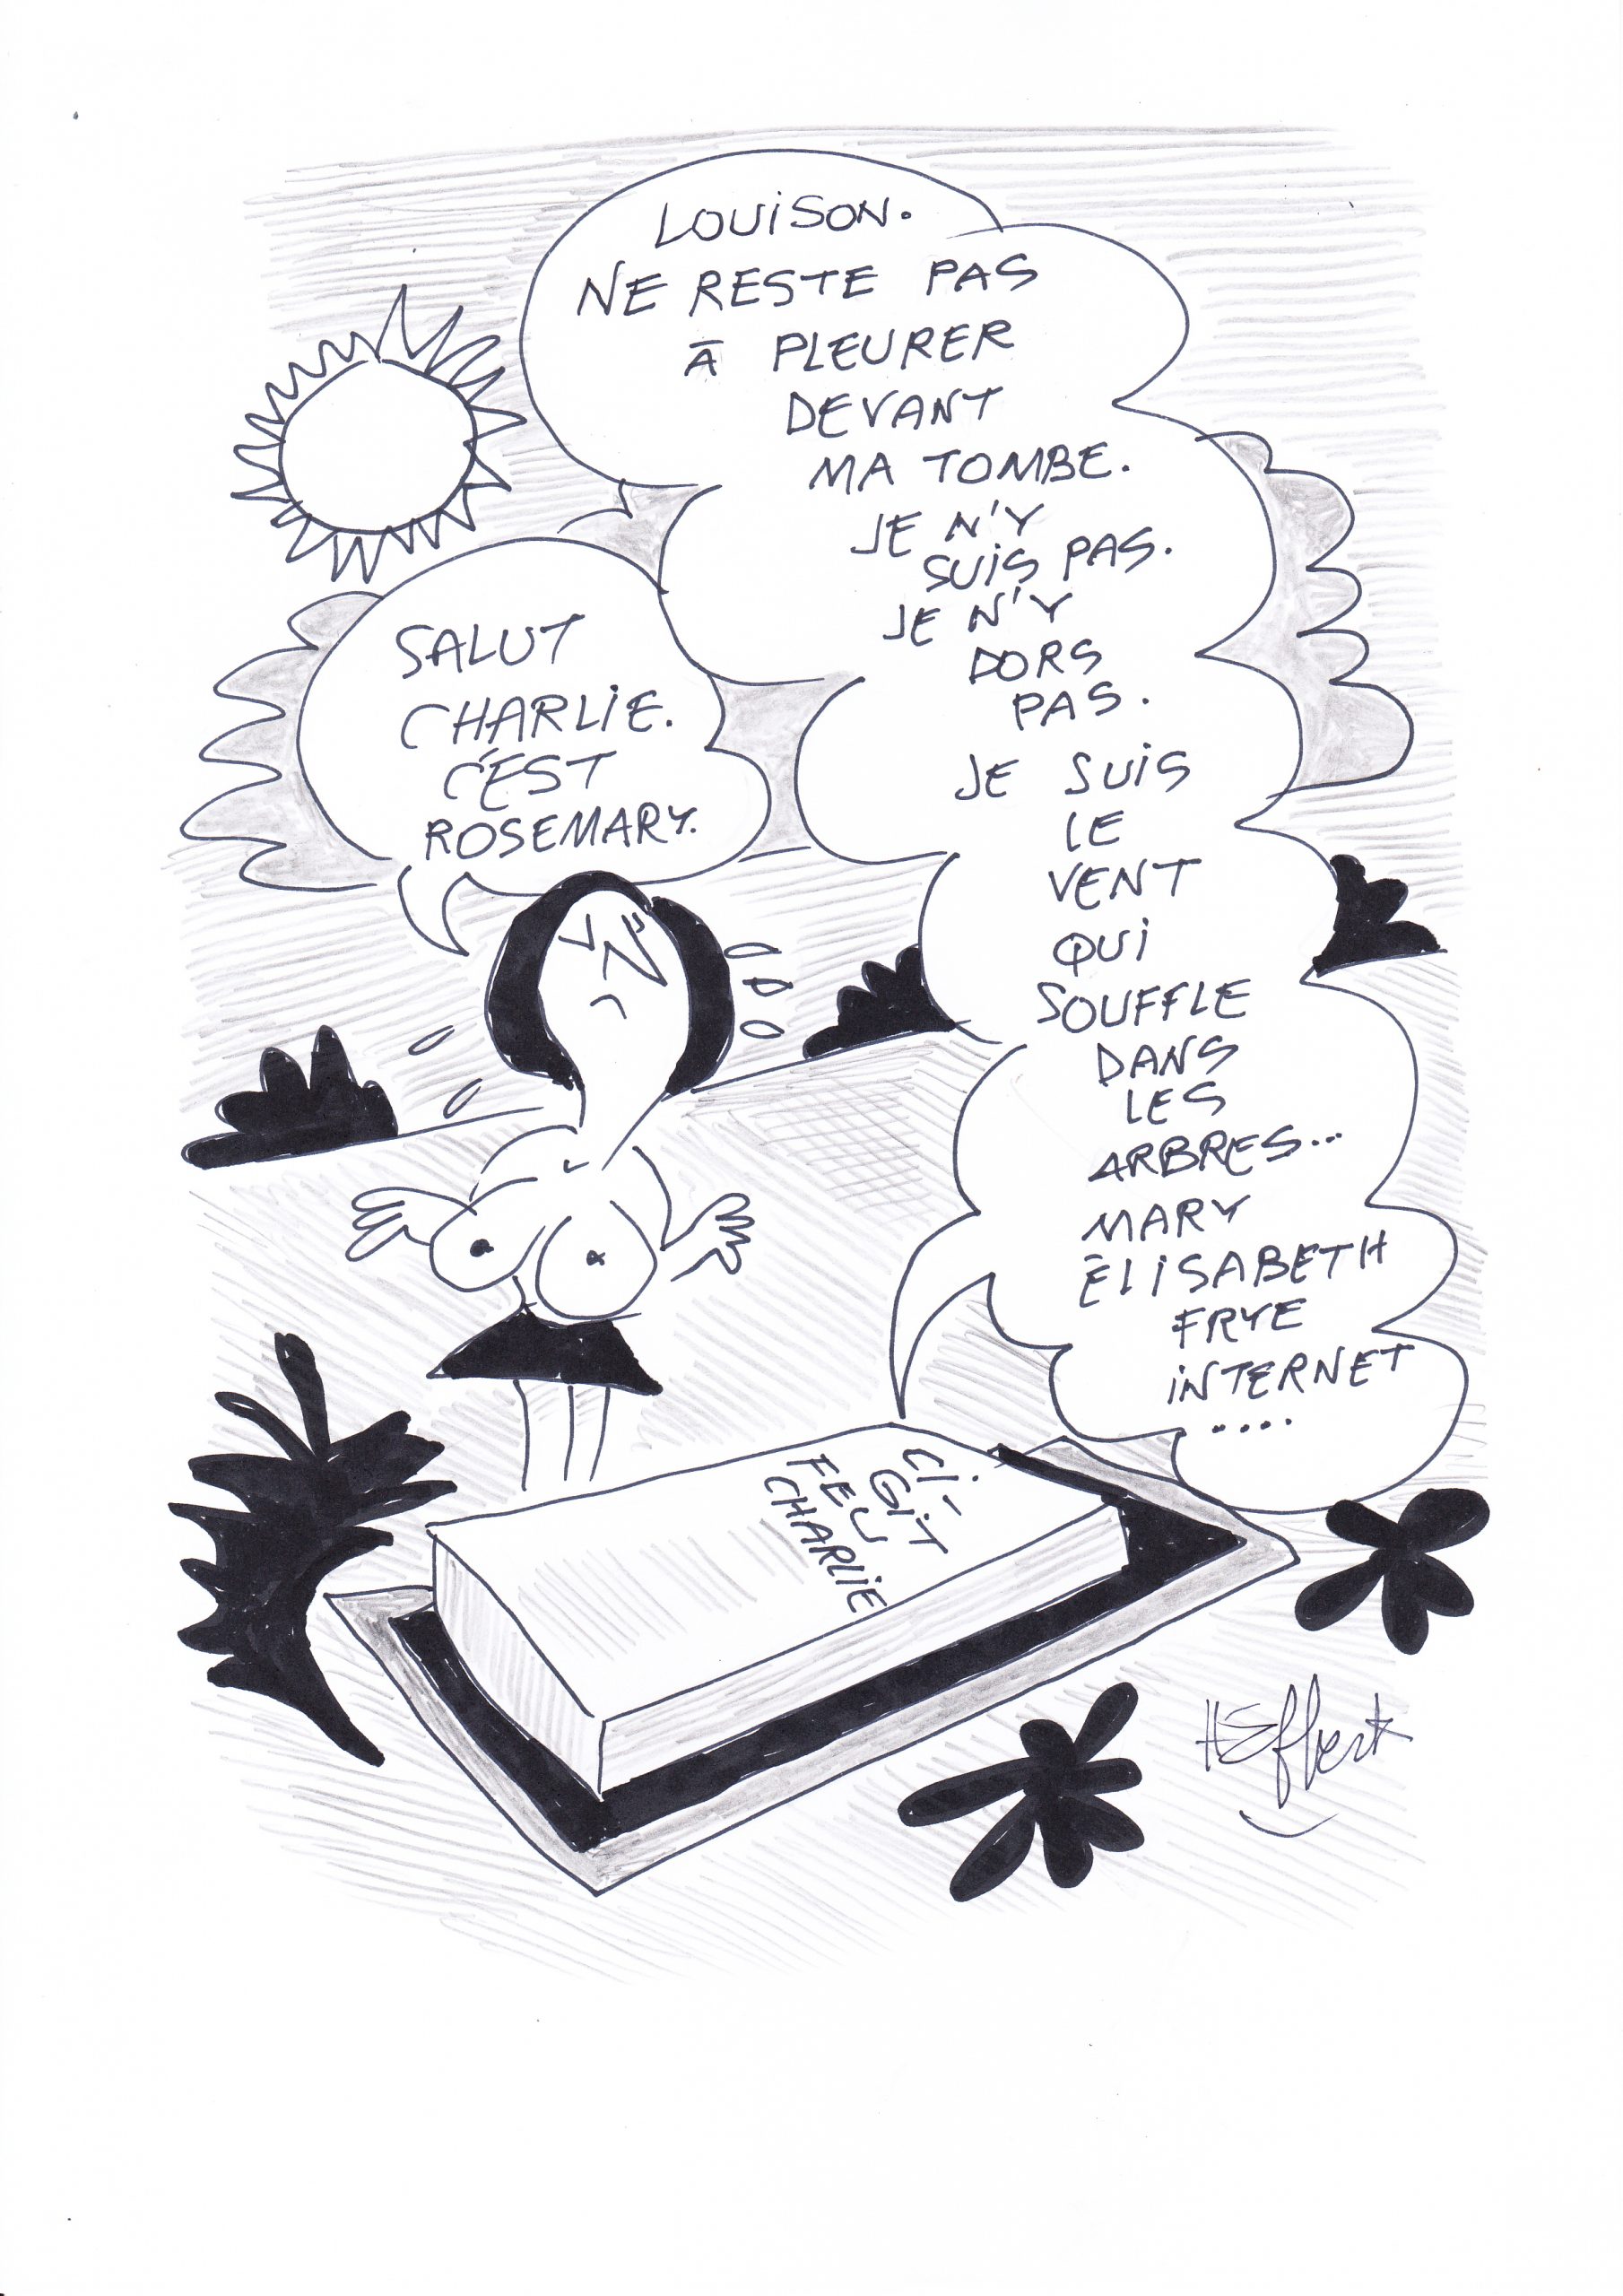 LOUISON.
NE RESTE PAS
À PLEURER
DEVANT
MA TOMBE.
JE N'Y
SUIS PAS.
JE N'Y
DORS
PAS.
JE SUIS
LE
VENT
QUI
SOUFFLE
DANS
LES
ARBRES...
MARY
ÉLISABETH
FRYE
INTERNET
....
SALUT
CHARLIE.
C'EST
ROSEMARY.
CI-
GÎT
FEU
CHARLIE